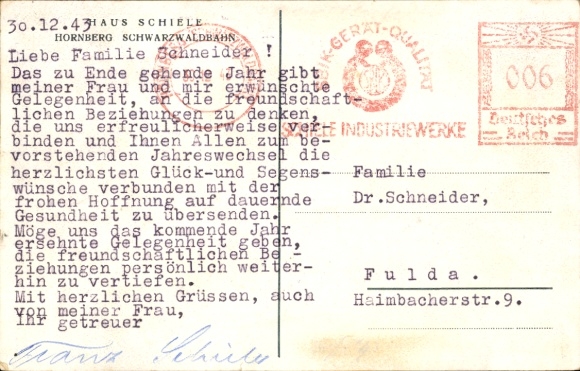 30.12.43
HAUS SCHIELE
HORNBERG SCHWARZWALDBAHN
Liebe Familie Schneider !
Das zu Ende gehende Jahr gibt
meiner Frau und mir erwünschte
Gelegenheit, an die freundschaft-
lichen Beziehungen zu denken,
die uns erfreulicherweise ver-
binden und Ihnen Allen zum be-
vorstehenden Jahreswechsel die
herzlichsten Glück-und Segens-
wünsche verbunden mit der
frohen Hoffnung auf dauernde
Gesundheit zu übersenden.
Möge uns das kommende Jahr
ersehnte Gelegenheit geben,
die freundschaftlichen Be -
ziehungen persönlich weiter-
hin zu vertiefen.
Mit herzlichen Grüssen, auch
von meiner Frau,
Ihr getreuer
Franz Schiele
-GERÄT-QUALITÄT
INDUSTRIEWERKE
006
Deutsches
Reich
Familie
Dr.Schneider,
Fulda.
Haimbacherstr.9.